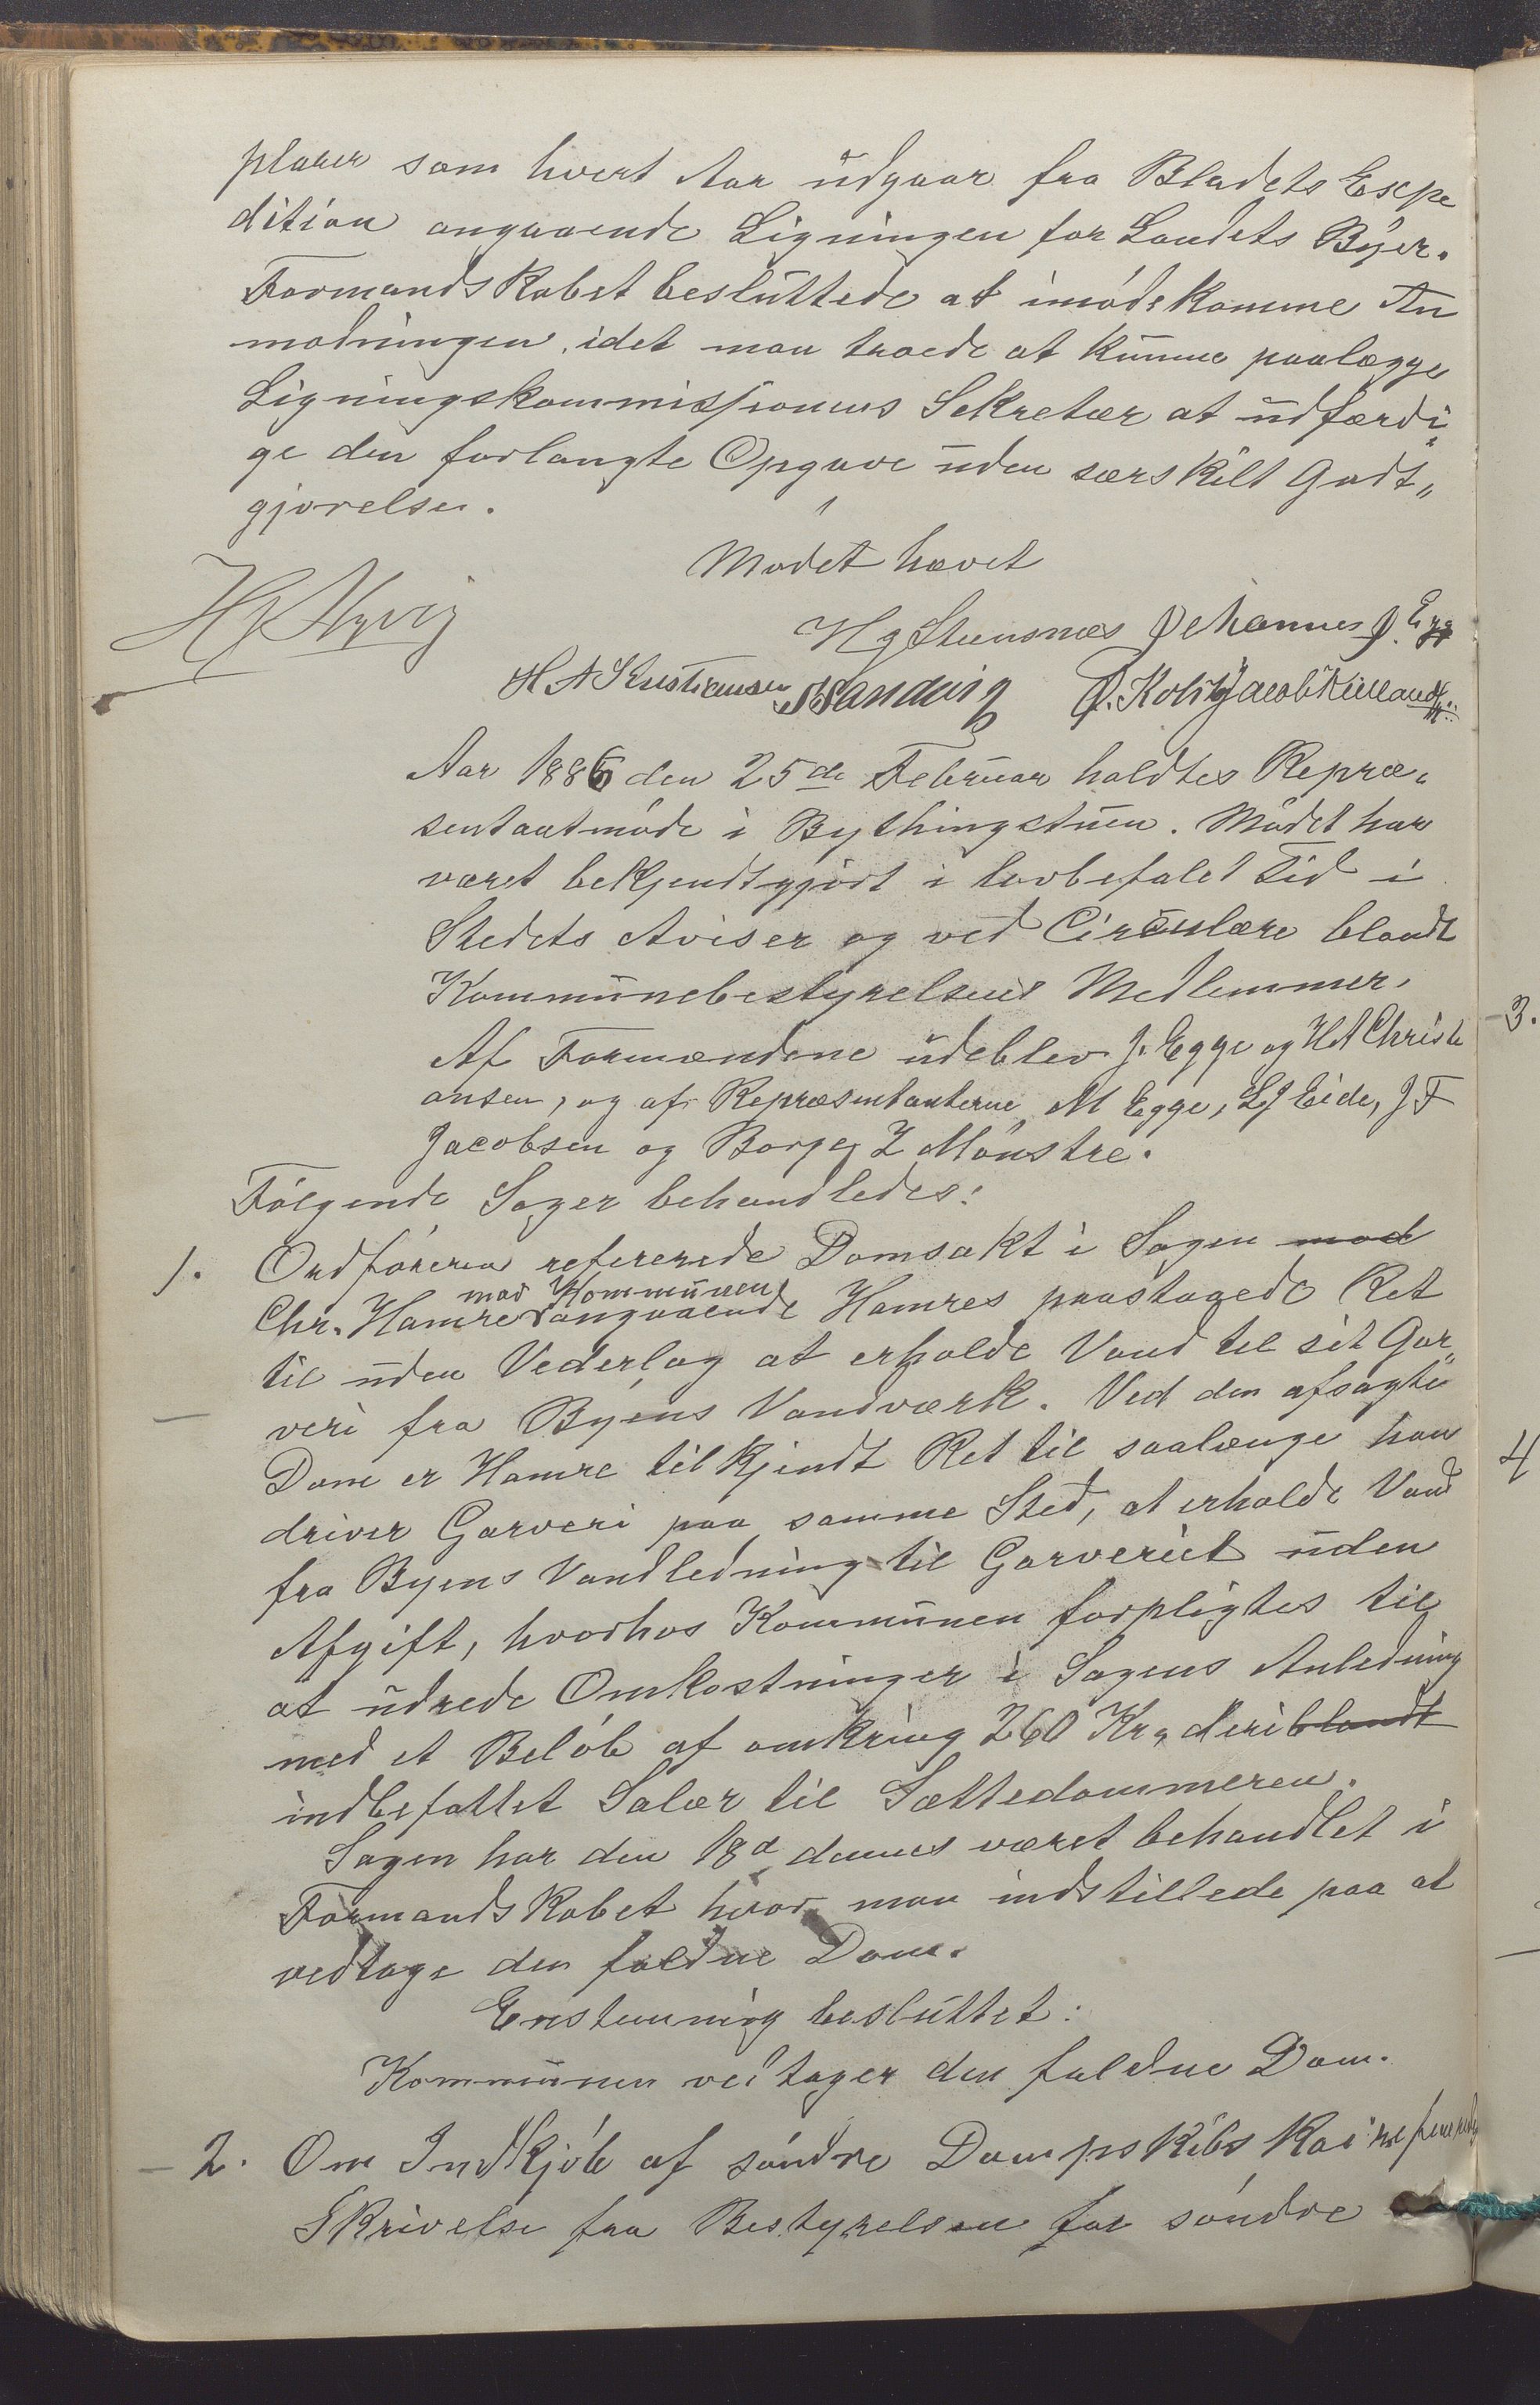 plarer som hvert Aar udgaar fra Bladets Expe
dition angaaende Ligningen for Landets Byer.
Formandskabet besluttede at imødekomme An
modningen, idet man troede at kunne paalægge
Ligningskommissionens Sekretær at udfærdi„
ge den forlangte Opgave uden særskilt Godt„
gjørelse.
Mødet hævet
H J Steensnæs Johannes J. Egge
H A Kristiansen
Jacob Kielland
Aar 1886 den 25de Februar holdtes Repræ„
sentantmøde i Bythingstuen. Mødet har
været bekjendtgjort i lovbefalet Tid i
Stedets Aviser og ved Circulære blandt
Kommunebestyrelsens Medlemmer.
Af Formændene udeblev J. Egge og H A Christi
ansen, og af Repræsentanterne M Egge, L J Eide, J F
Jacobsen og Borger Z Mønstre.
Følgende Sager behandledes:
1. Ordføreren refererede Domsakt i Sagen mod
mod Kommunen
Chr. Hamre angaaende Hamres paastagede Ret
til uden Vederlag at erholde Vand til sit Gar„
veri fra Byens Vandværk. Ved den afsagte
Dom er Hamre tilkjendt Ret til saalænge han
driver Garveri paa samme Sted, at erholde Vand
fra Byens Vandledning til Garveriet uden
Afgift, hvorhos Kommunen forpligtes til
at udrede Omkostninger i Sagens Anledning
med et Beløb af omkring 260 Kr, deriblandt
indbefattet Salær til Sættedommeren.
Sagen har den 18d dennes været behandlet i
Formandskabet hvor man indstillede paa at
vedtage den faldne Dom.
Enstemmig besluttet:
Kommunen vedtager den faldne Dom.
2. Om Indkjøb af søndre Dampskibskai
Skrivelse fra Bestyrelsen for søndre
3.
4